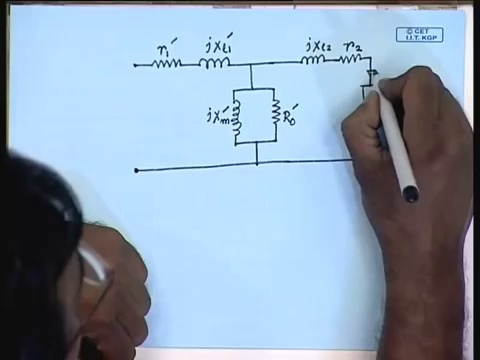 © CET
I.I.T. KGP
r₁′ jxₗ₁′ jxₗ₂ r₂
jXm′ R₀′